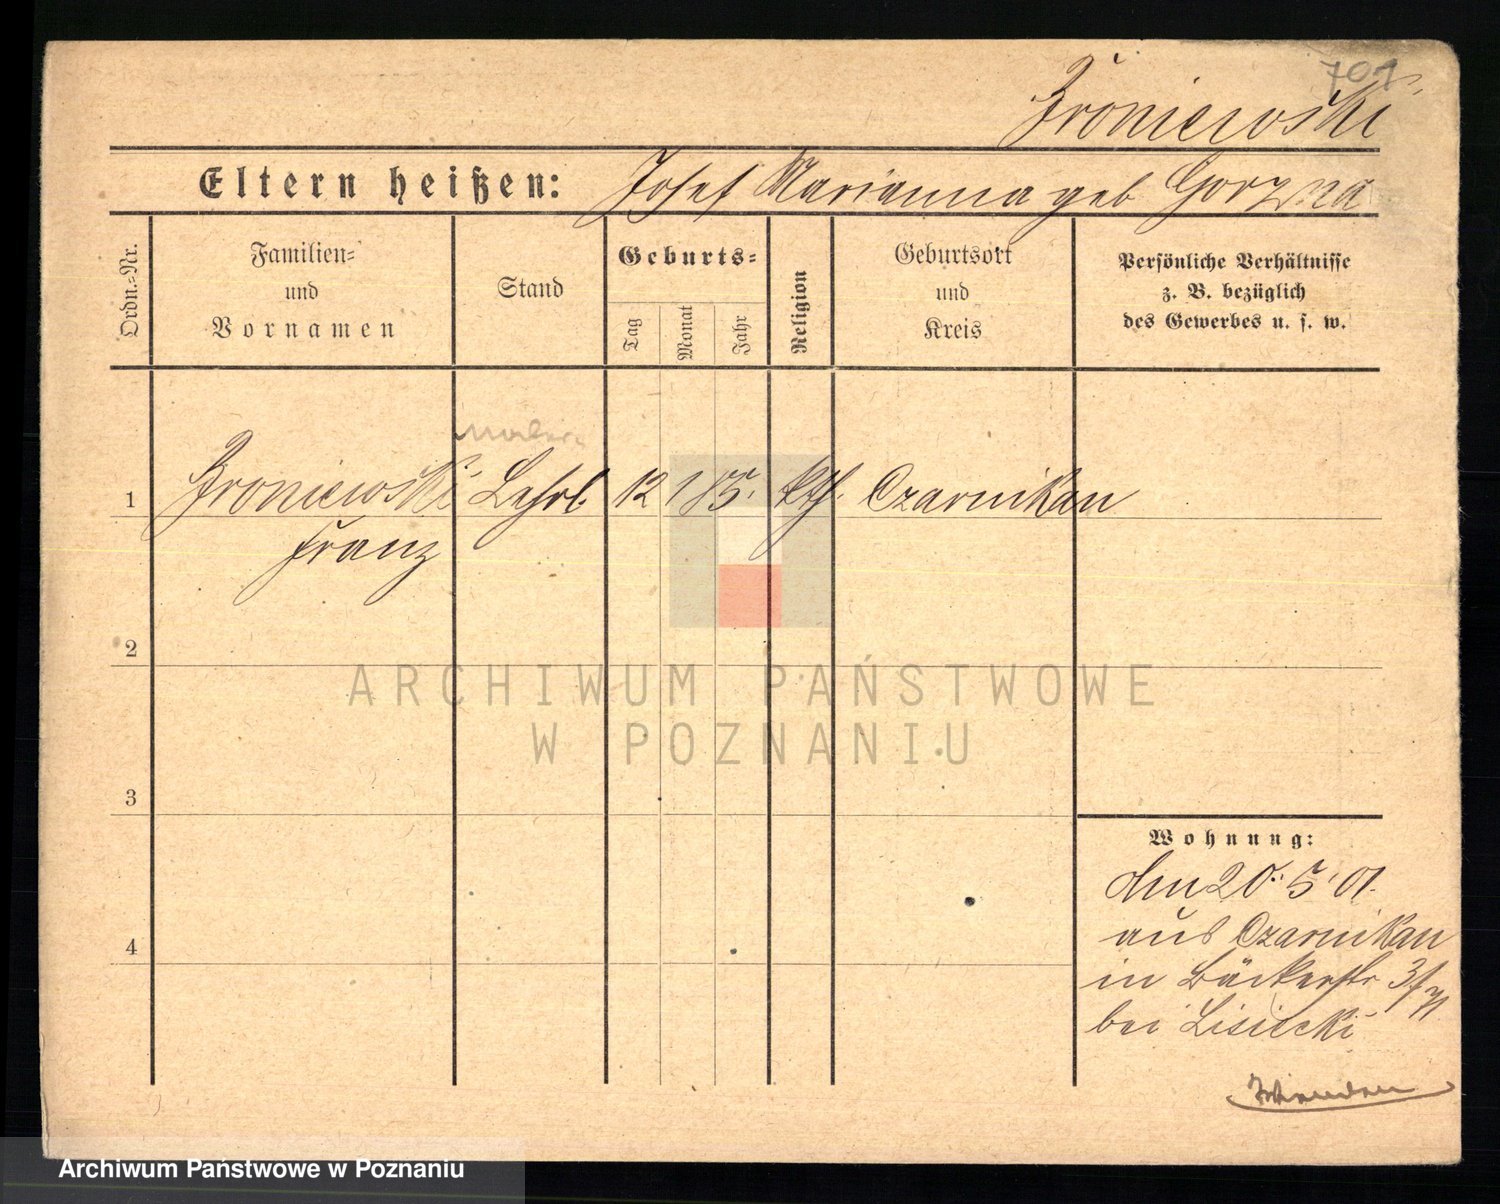 701
Żroniewski
Eltern heißen: Josef Marianna geb Gorzna
Ordn.-Nr.
Familien-
und
Vornamen
Stand
Geburts-
Tag
Monat
Jahr
Religion
Geburtsort
und
Kreis
Persönliche Verhältnisse
z. B. bezüglich
des Gewerbes u. s. w.
Maler
1 Zroniewski Lehrl. 12 1 85. kth. Czarnikau
Franz
2
ARCHIWUM PAŃSTWOWE
W POZNANIU
3
Wohnung:
den 20. 5. 01.
4
aus Czarnikau
in Bäckerstr
bei Lisiecki
Archiwum Państwowe w Poznaniu